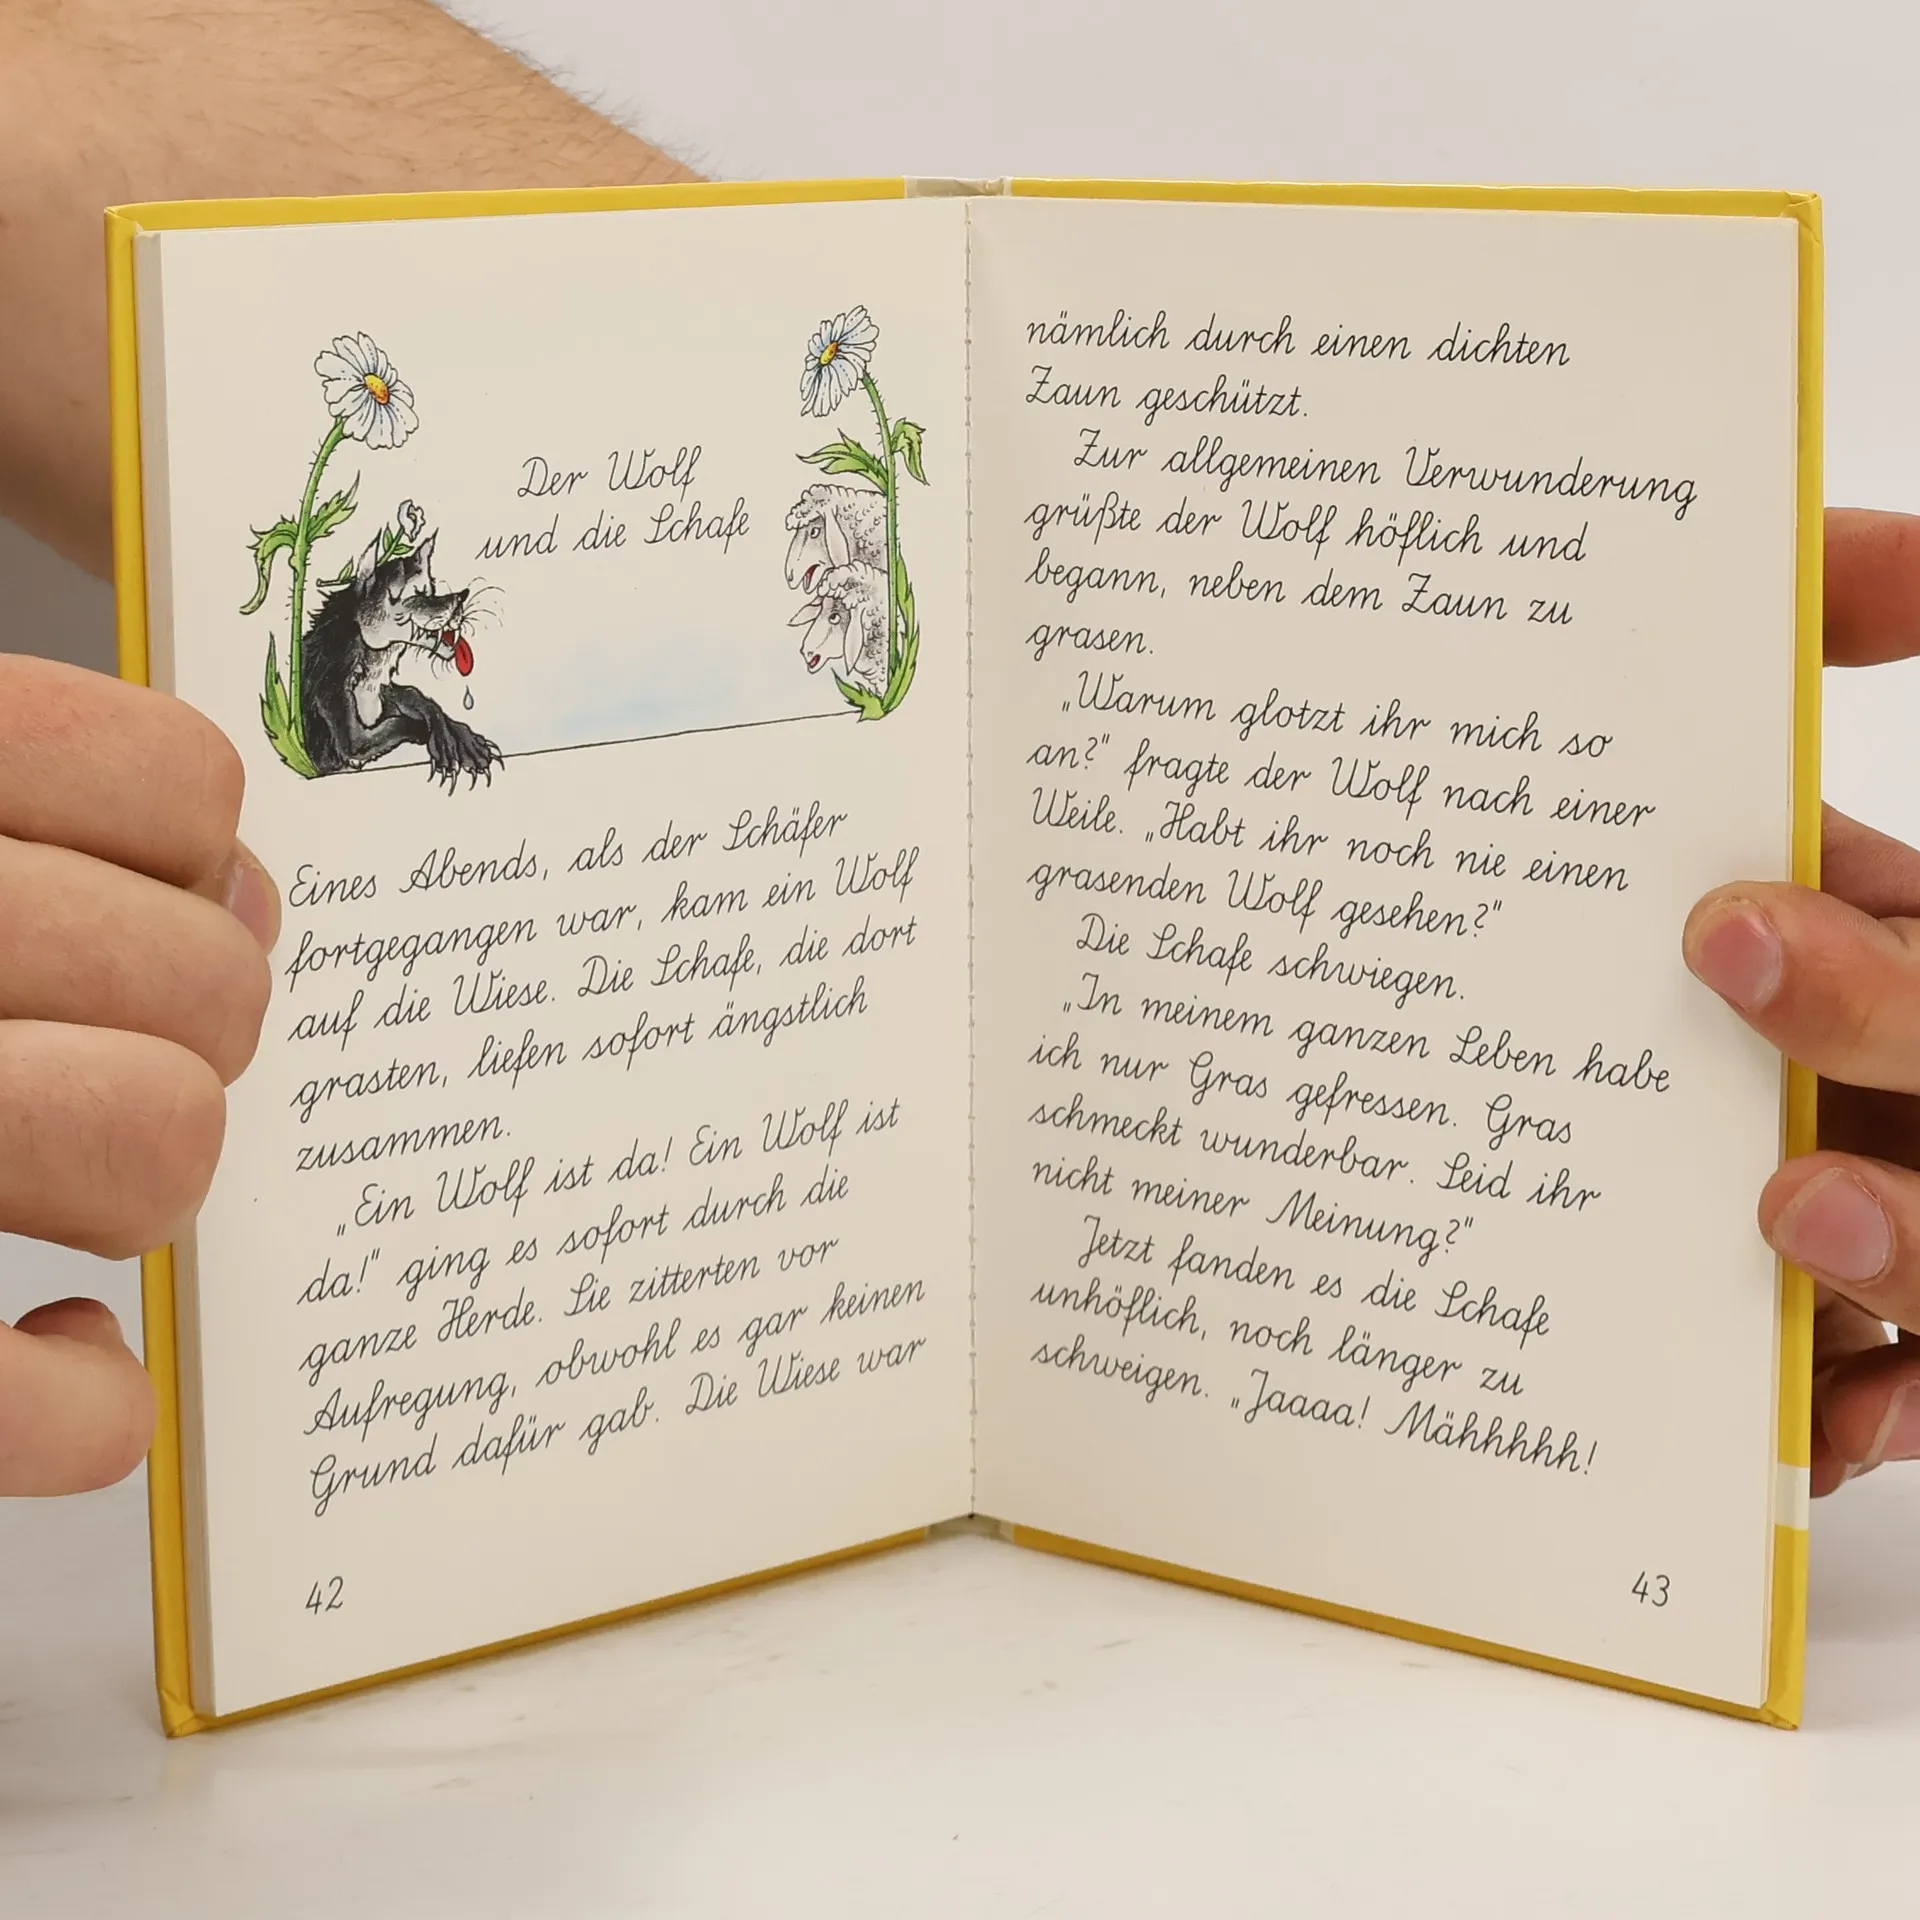 Der Wolf
und die Schafe
Eines Abends, als der Schäfer
fortgegangen war, kam ein Wolf
auf die Wiese. Die Schafe, die dort
grasten, liefen sofort ängstlich
zusammen.
„Ein Wolf ist da! Ein Wolf ist
da!" ging es sofort durch die
ganze Herde. Sie zitterten vor
Aufregung, obwohl es gar keinen
Grund dafür gab. Die Wiese war
42
nämlich durch einen dichten
Zaun geschützt.
Zur allgemeinen Verwunderung
grüßte der Wolf höflich und
begann, neben dem Zaun zu
grasen.
„Warum glotzt ihr mich so
an?" fragte der Wolf nach einer
Weile. „Habt ihr noch nie einen
grasenden Wolf gesehen?"
Die Schafe schwiegen.
„In meinem ganzen Leben habe
ich nur Gras gefressen. Gras
schmeckt wunderbar. Seid ihr
nicht meiner Meinung?"
Jetzt fanden es die Schafe
unhöflich, noch länger zu
schweigen. „Jaaaa! Mähhhhhh!
43